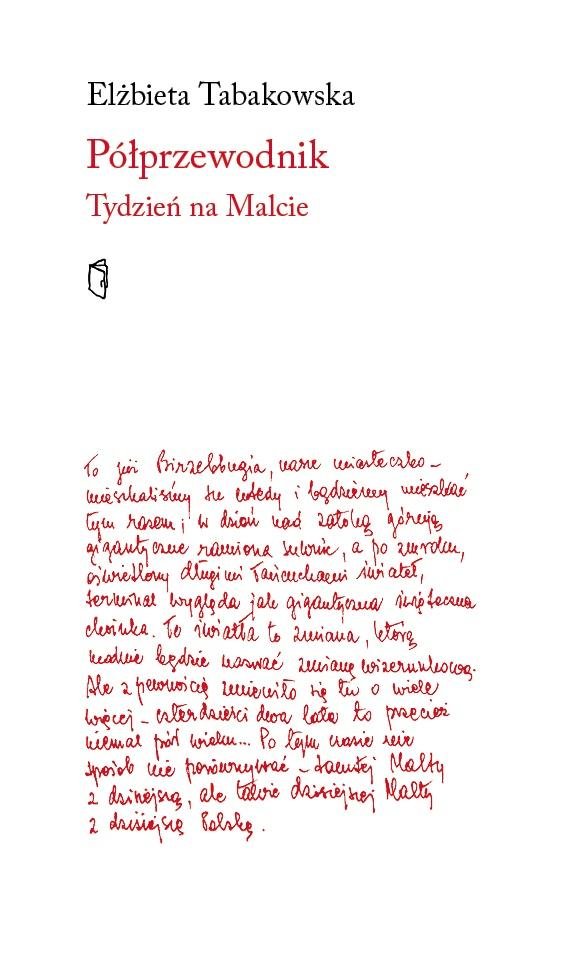 Elżbieta Tabakowska
Półprzewodnik
Tydzień na Malcie
To jest Birzebbugia, nasze miasteczko –
mieszkaliśmy tu wtedy i będziemy mieszkać
tym razem; w dzień nad zatoką górują
gigantyczne ramiona suwnic, a po zmroku,
oświetlony długimi łańcuchami świateł,
terminal wygląda jak gigantyczna świąteczna
choinka. Te światła to zmiana, którą
modnie będzie nazwać zmianą wizerunkową.
Ale z pewnością zmieniło się tu o wiele
więcej – czterdzieści dwa lata to przecież
niemal pół wieku... Po tym czasie nie
sposób nie porównywać – tamtej Malty
z dzisiejszą, ale także dzisiejszej Malty
z dzisiejszą Polską.